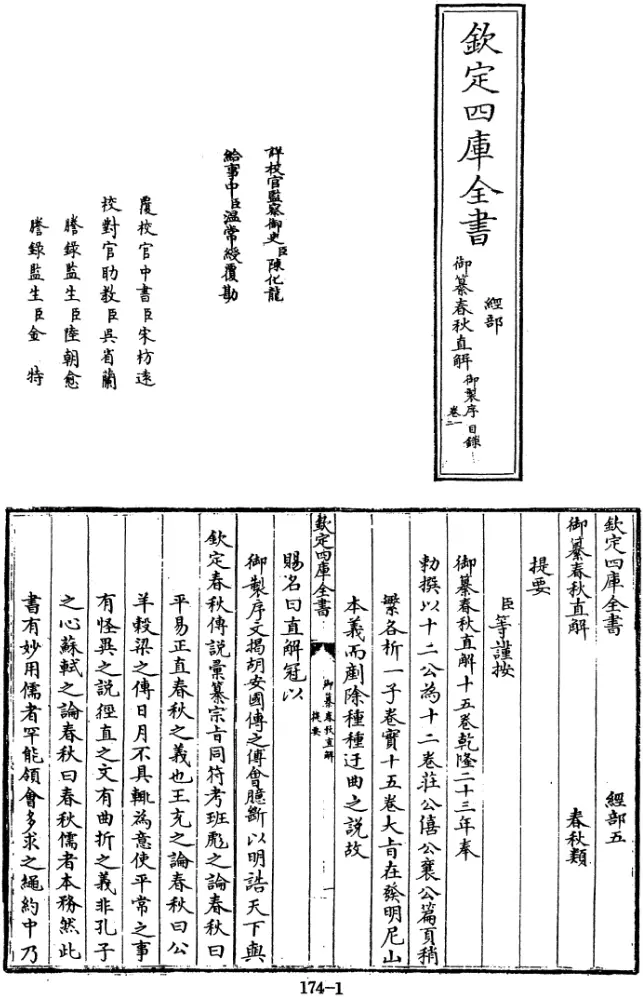 欽定四庫全書
經部
御纂春秋直解
御製序 目錄
卷一
詳校官監察御史臣陳化龍
給事中臣溫常綬覆勘
覆校官中書臣宋枋遠
校對官助教臣吳省蘭
謄錄監生臣陸朝愈
謄錄監生臣金特
欽定四庫全書 經部五
御纂春秋直解 春秋類
提要
臣等謹按
御纂春秋直解十五卷乾隆二十三年奉
勅撰以十二公為十二卷莊公僖公襄公篇頁稍
繁各析一子卷實十五卷大旨在發明尼山
本義而剷除種種迂曲之說故
欽定四庫全書
御纂春秋直解
提要
一
賜名曰直解冠以
御製序文揭胡安國傳之傅會臆斷以明誥天下與
欽定春秋傳說彙纂宗旨同符考班彪之論春秋曰
平易正直春秋之義也王充之論春秋曰公
羊穀梁之傳日月不具輒為意使平常之事
有怪異之說徑直之文有曲折之義非孔子
之心蘇軾之論春秋曰春秋儒者本務然此
書有妙用儒者罕能領會多求之繩約中乃
174-1